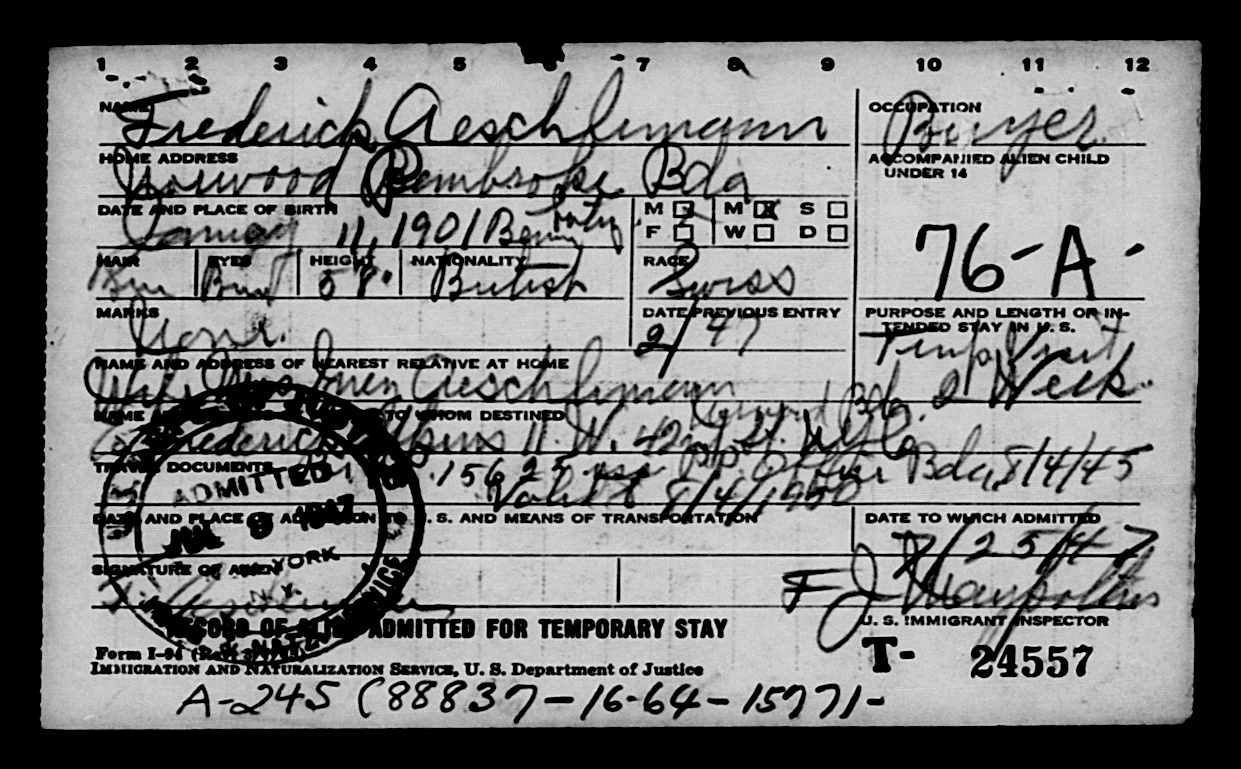 1 2 3 4 5 6 7 8 9 10 11 12
NAME Frederick Aeschlimann
OCCUPATION Buyer
HOME ADDRESS Norwood Pembroke Bda
ACCOMPANIED ALIEN CHILD UNDER 14
DATE AND PLACE OF BIRTH January 11, 1901
M F M X W S D
76-A-
HAIR Brn EYES Brn HEIGHT 5 8" NATIONALITY British RACE Swiss
MARKS None.
DATE PREVIOUS ENTRY 2/47
PURPOSE AND LENGTH OF INTENDED STAY IN U. S. Temp Visit 2 Week
NAME AND ADDRESS OF NEAREST RELATIVE AT HOME
Wife Mrs Aeschlimann Bda.
TO WHOM DESTINED
Frederick 42nd St. NYC
TRAVEL DOCUMENTS 8/4/45
8/4/1950
ADMITTED
JUL 9 1947
NEW YORK
N.Y.
DATE AND PLACE OF ADMISSION TO U. S. AND MEANS OF TRANSPORTATION
DATE TO WHICH ADMITTED
7/25/47
SIGNATURE OF ALIEN
F. Aeschlimann
F J
U. S. IMMIGRANT INSPECTOR
RECORD OF ALIEN ADMITTED FOR TEMPORARY STAY
Form I-94
IMMIGRATION AND NATURALIZATION SERVICE, U. S. Department of Justice
T- 24557
A-245 (88837-16-64-15771-